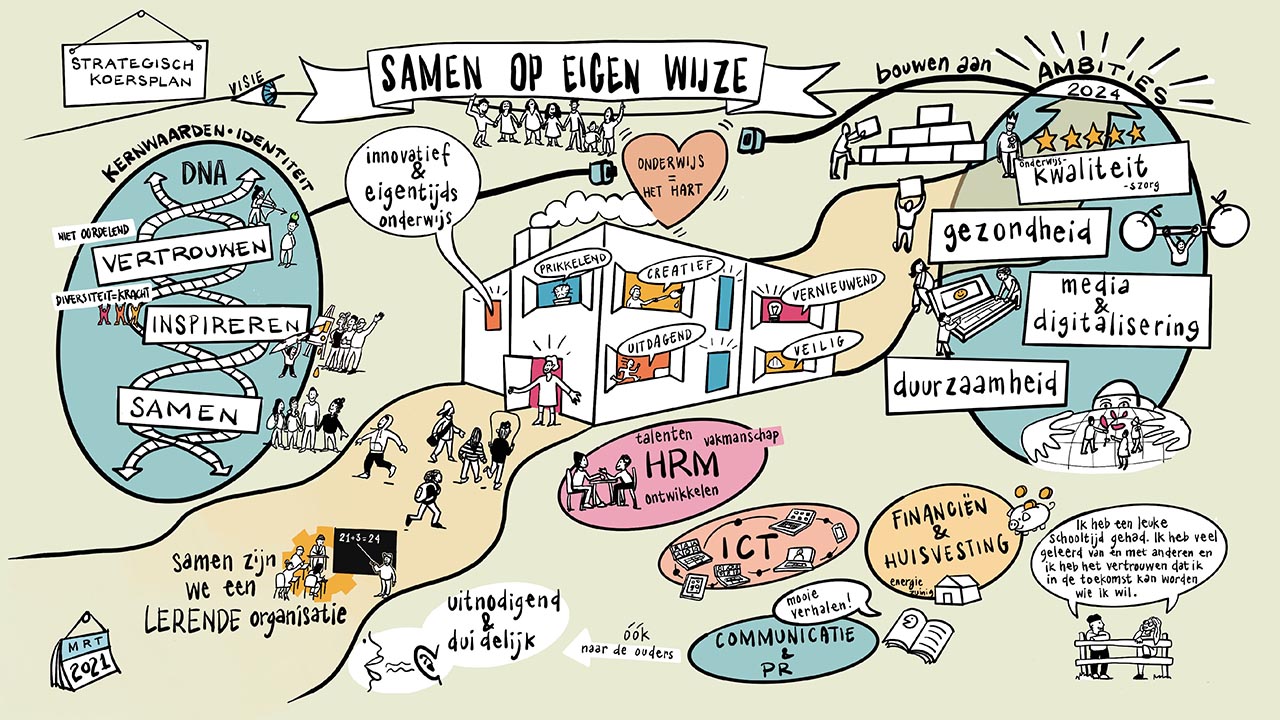 STRATEGISCH
KOERSPLAN
VISIE
SAMEN OP EIGEN WIJZE
bouwen aan
AMBITIES
2024
KERNWAARDEN • IDENTITEIT
DNA
NIET OORDELEND
VERTROUWEN
DIVERSITEIT=KRACHT
INSPIREREN
SAMEN
innovatief
&
eigentijds
onderwijs
ONDERWIJS
=
HET HART
PRIKKELEND
CREATIEF
VERNIEUWEND
UITDAGEND
VEILIG
onderwijs-
kwaliteit
-szorg
gezondheid
media
&
digitalisering
duurzaamheid
talenten
vakmanschap
HRM
ontwikkelen
ICT
FINANCIËN
&
HUISVESTING
energie
zuinig
Ik heb een leuke
Schooltijd gehad. Ik heb veel
geleerd van en met anderen en
ik heb het vertrouwen dat ik
in de toekomst kan worden
wie ik wil.
21+3=24
samen zijn
we een
LERENDE organisatie
MRT
2021
uitnodigend
&
duidelijk
óók
naar de ouders
mooie
verhalen!
COMMUNICATIE
&
PR